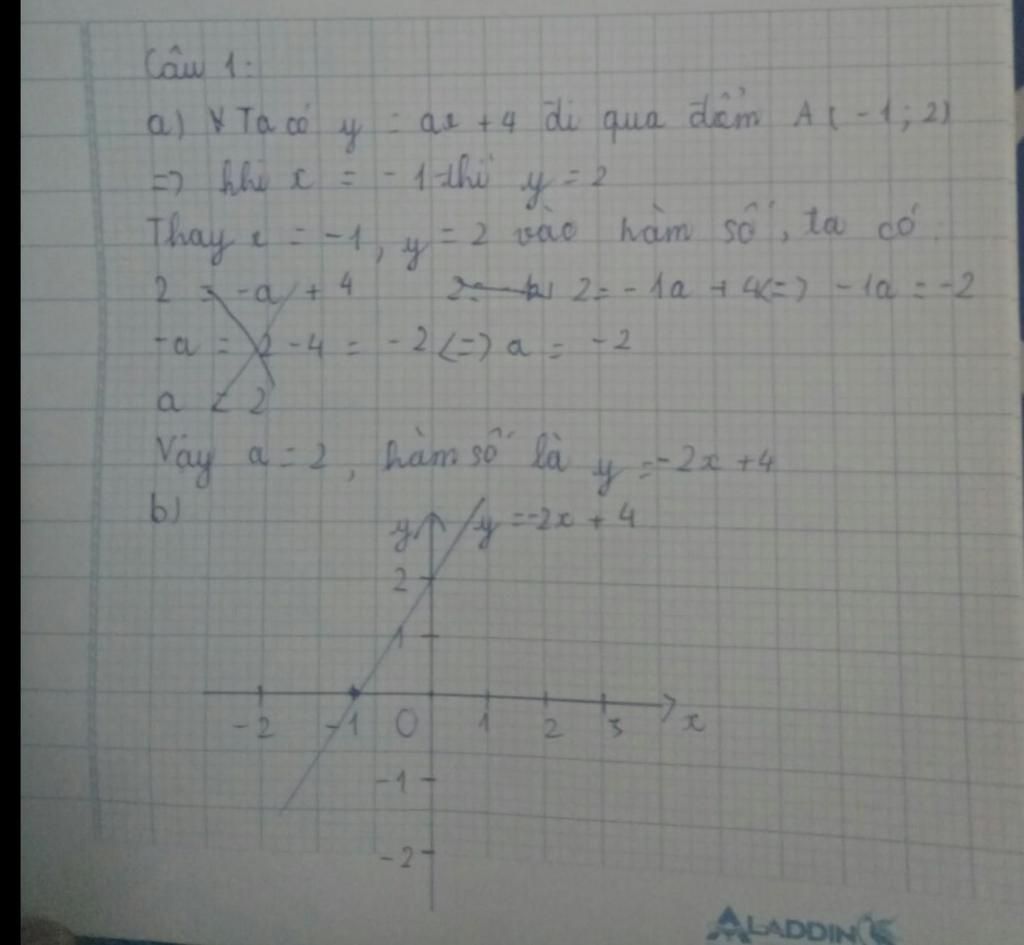 Câu 1:
a) Ta có y = ax + 4 đi qua điểm A(-1; 2)
=> khi x = -1 thì y = 2
Thay x = -1, y = 2 vào hàm số, ta có
2 = -a + 4 2 = -1a + 4 <=> -1a = -2
-a = 2 - 4 = -2 <=> a = -2
a = 2
Vậy a = 2, hàm số là y = -2x + 4
b)
y y = -2x + 4
2
1
-2 -1 0 1 2 3 x
-1
-2
ALADDIN